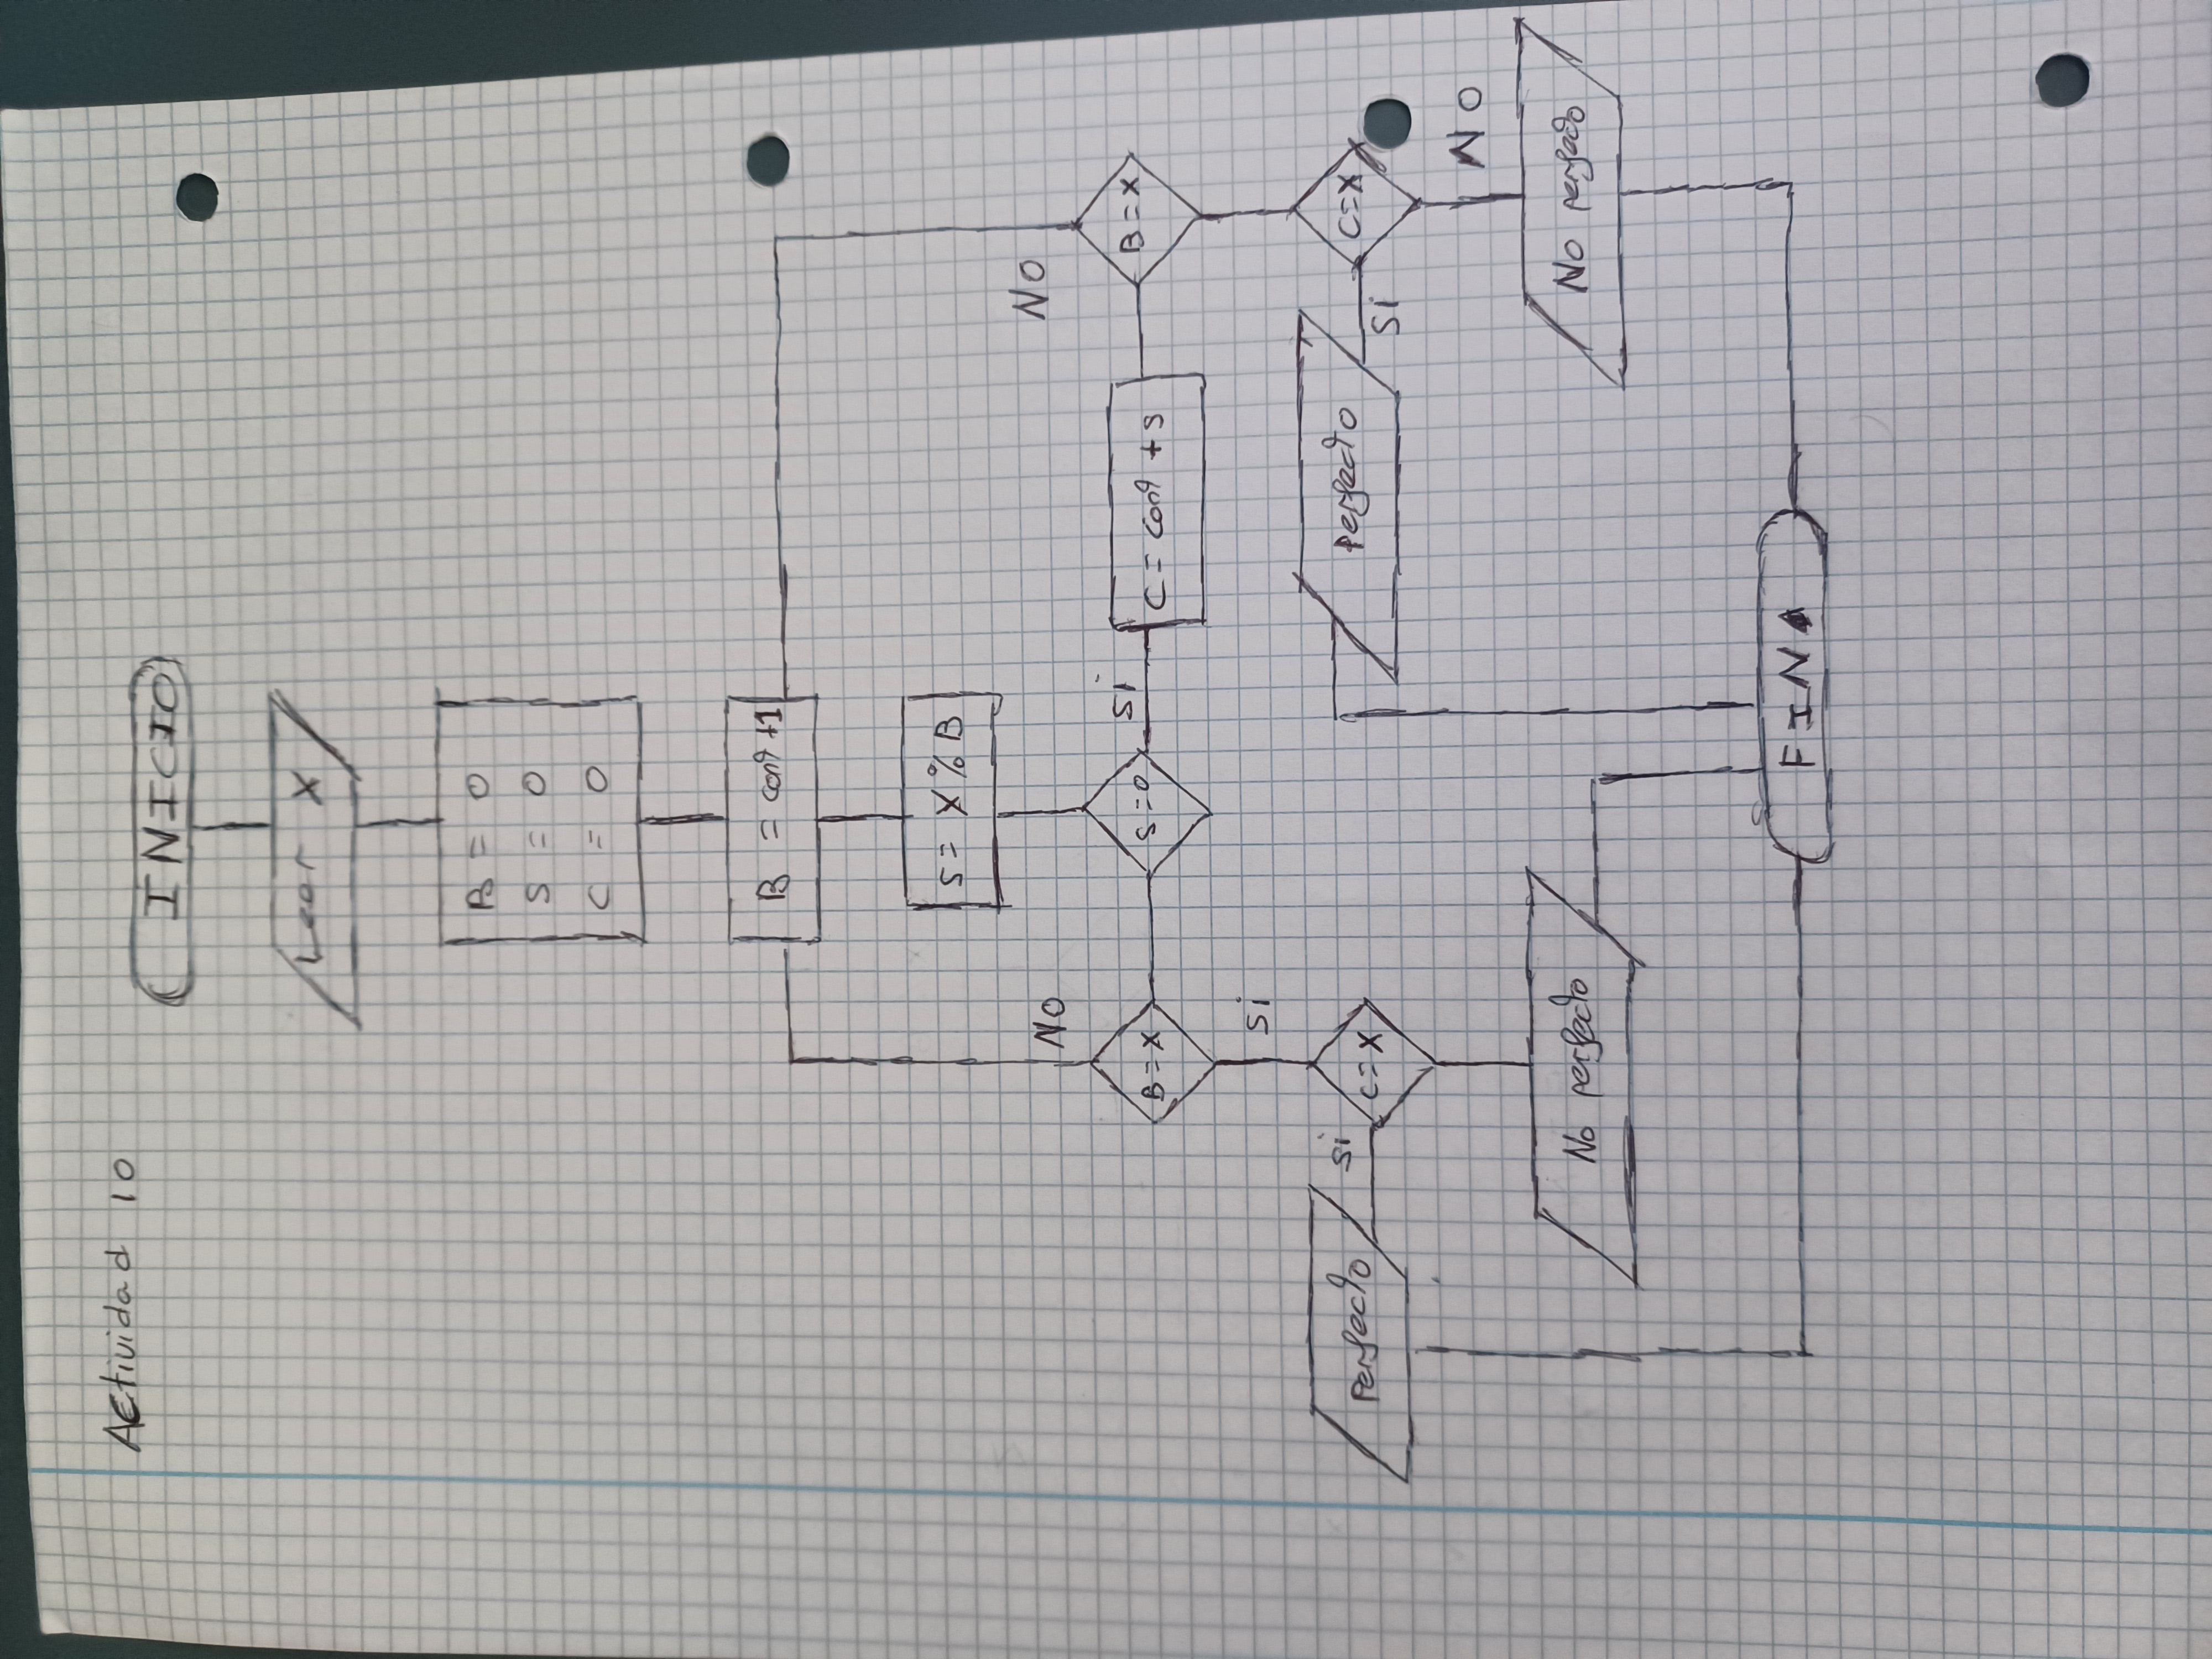 Actividad 10
INICIO
Leer X
B = 0
S = 0
C = 0
B = cont +1
S = X % B
NO
NO
B = X
S = 0
si
C = cont + s
B = X
si
perfecto
si
C = X
perfecto
si
C = X
NO
No perfecto
No perfecto
FIN